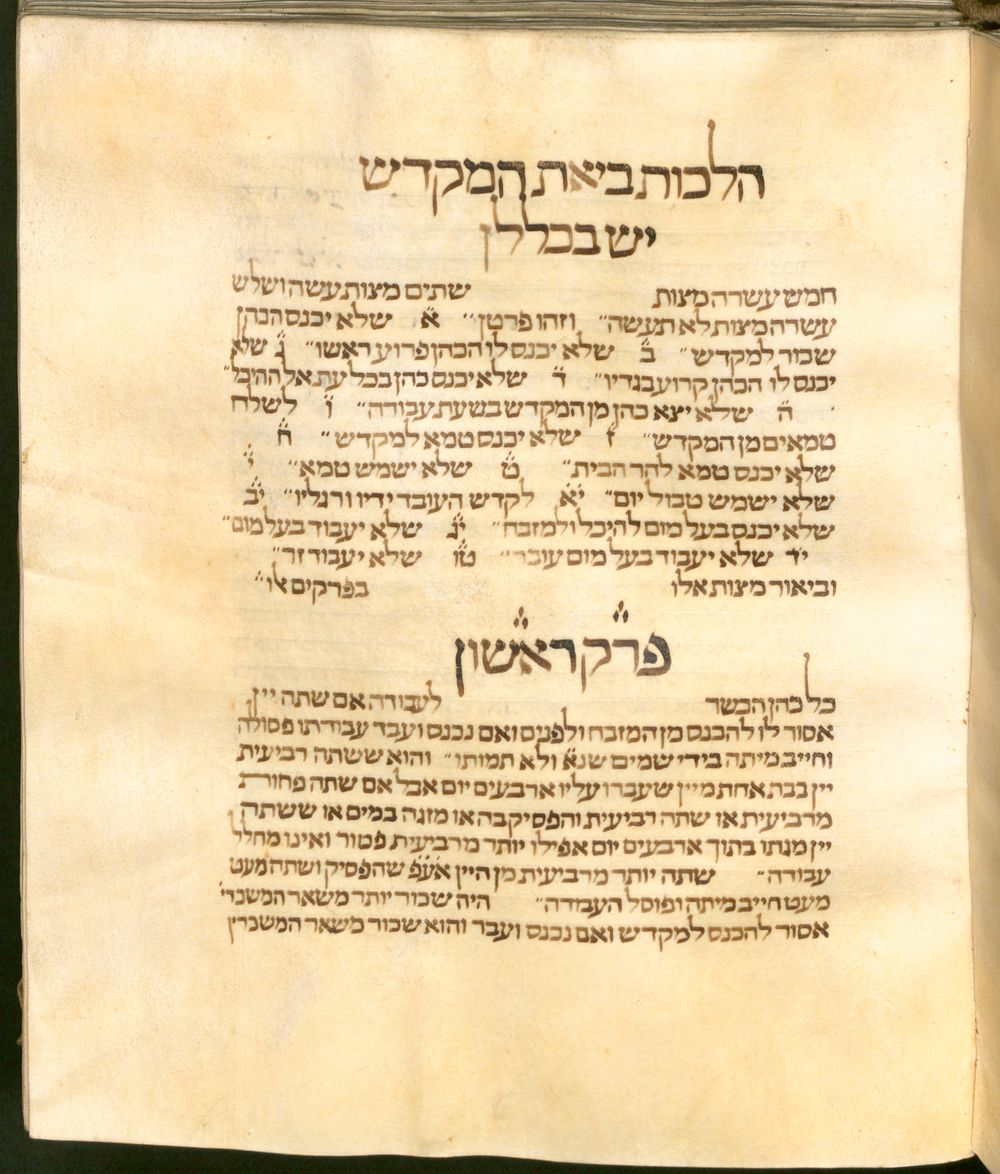 הלכות ביאת המקדש
יש בכללן
חמש עשרה מצות שתים מצות עשה ושלש
עשרה מצות לא תעשה״ וזהו פרטן״ א שלא יכנס הכהן
שכור למקדש״ ב שלא יכנס לו הכהן פרוע ראשו״ ג שלא
יכנס לו הכהן קרוע בגדיו״ ד שלא יכנס כהן בכל עת אל ההיכל״
ה שלא יצא כהן מן המקדש בשעת עבודה״ ו לשלח
טמאים מן המקדש״ ז שלא יכנס טמא למקדש״ ח
שלא יכנס טמא להר הבית״ ט שלא ישמש טמא״ י
שלא ישמש טבול יום״ יא לקדש העובד ידיו ורגליו״ יב
שלא יכנס בעל מום להיכל ולמזבח״ יג שלא יעבוד בעל מום״
יד שלא יעבוד בעל מום עובר״ טו שלא יעבוד זר״
וביאור מצות אלו בפרקים אלו״
פרק ראשון
כל כהן הכשר לעבודה אם שתה יין
אסור לו להכנס מן המזבח ולפנים ואם נכנס ועבד עבודתו פסולה
וחייב מיתה בידי שמים שנא ולא תמותו״ והוא ששתה רביעית
יין בבת אחת מיין שעברו עליו ארבעים יום אבל אם שתה פחות
מרביעית או שתה רביעית והפסיק בה או מזגה במים או ששתה
יין מגתו בתוך ארבעים יום אפילו יותר מרביעית פטור ואינו מחלל
עבודה״ שתה יותר מרביעית מן היין אעפ שהפסיק ושתה מעט
מעט חייב מיתה ופוסל העבודה״ היה שכור יותר משאר המשכרי׳
אסור להכנס למקדש ואם נכנס ועבד והוא שכור משאר המשכרין